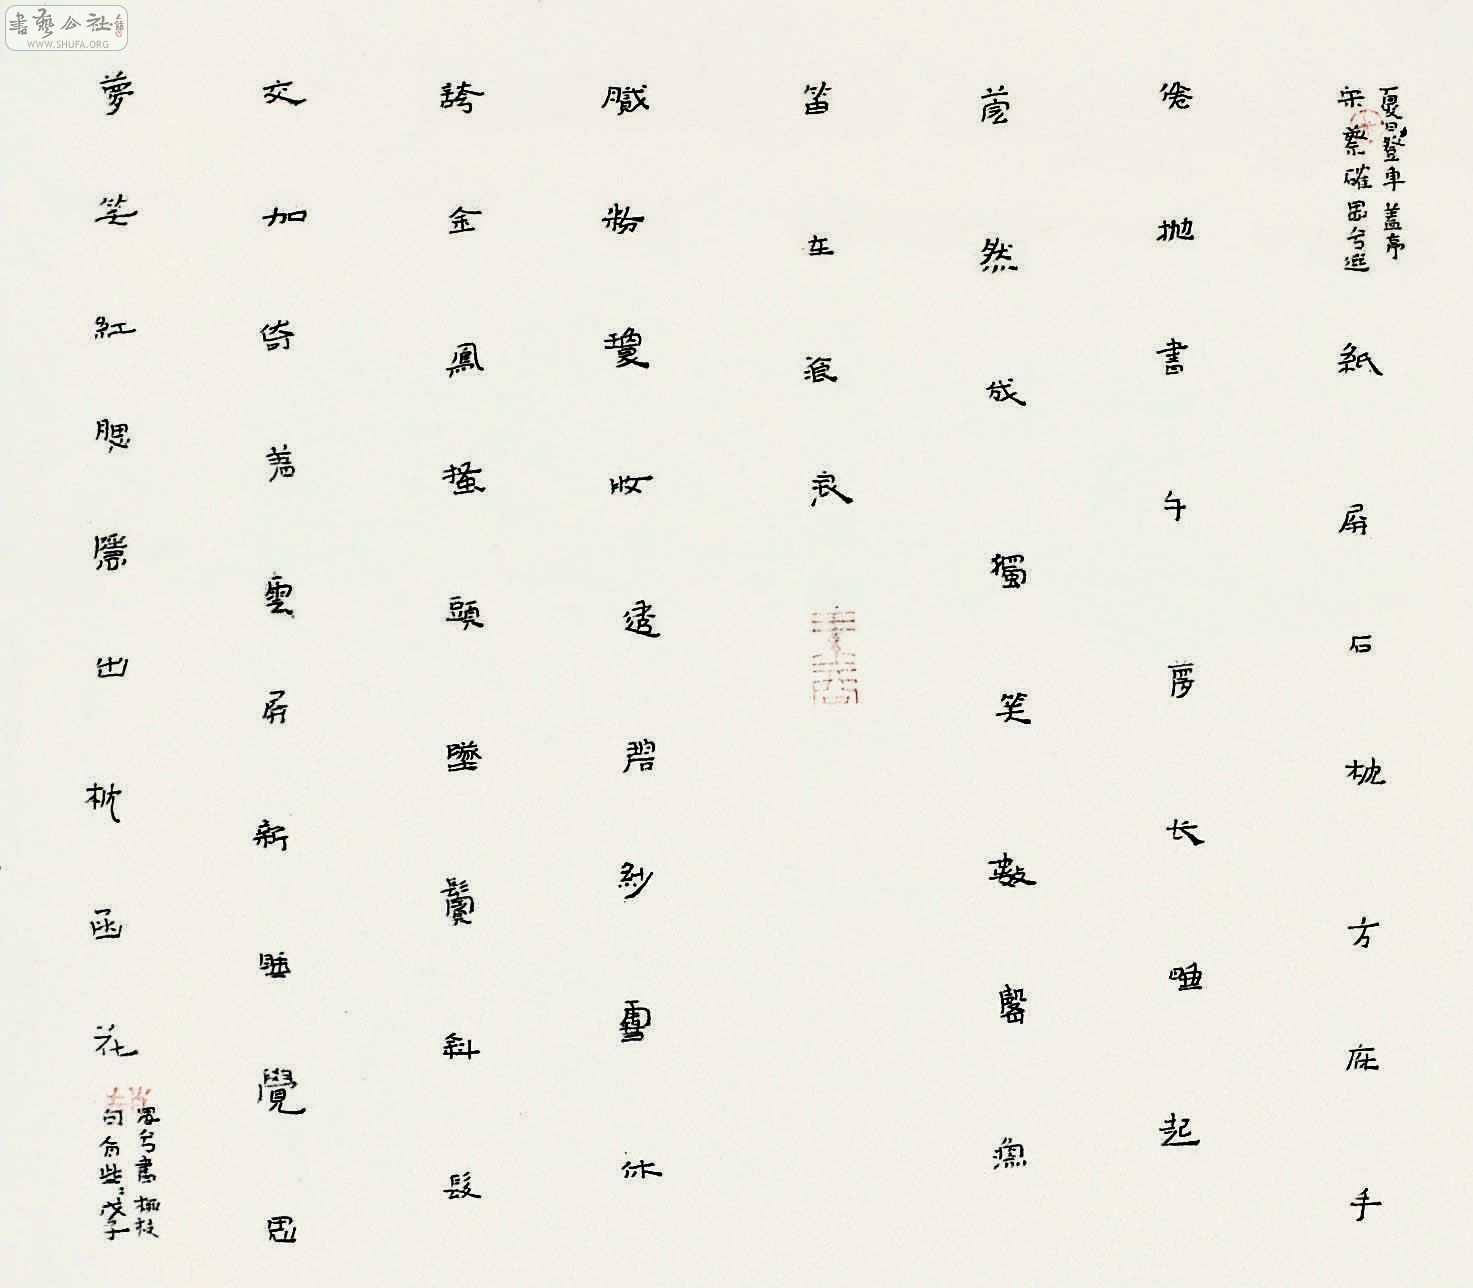 書藝公社
WWW.SHUFA.ORG
夏日登車蓋亭
宋蔡確 兮選
紙屏石枕方床手
倦抛書午夢长睡起
莞然成獨笑數聲漁
笛在滄浪
膩粉瓊妝透碧紗雪休
誇金鳳搔頭墜鬢斜髮
交加倚着雲屏新睡覺思
夢笑紅腮隱出枕函花
兮書柳枝
句有些々戊子